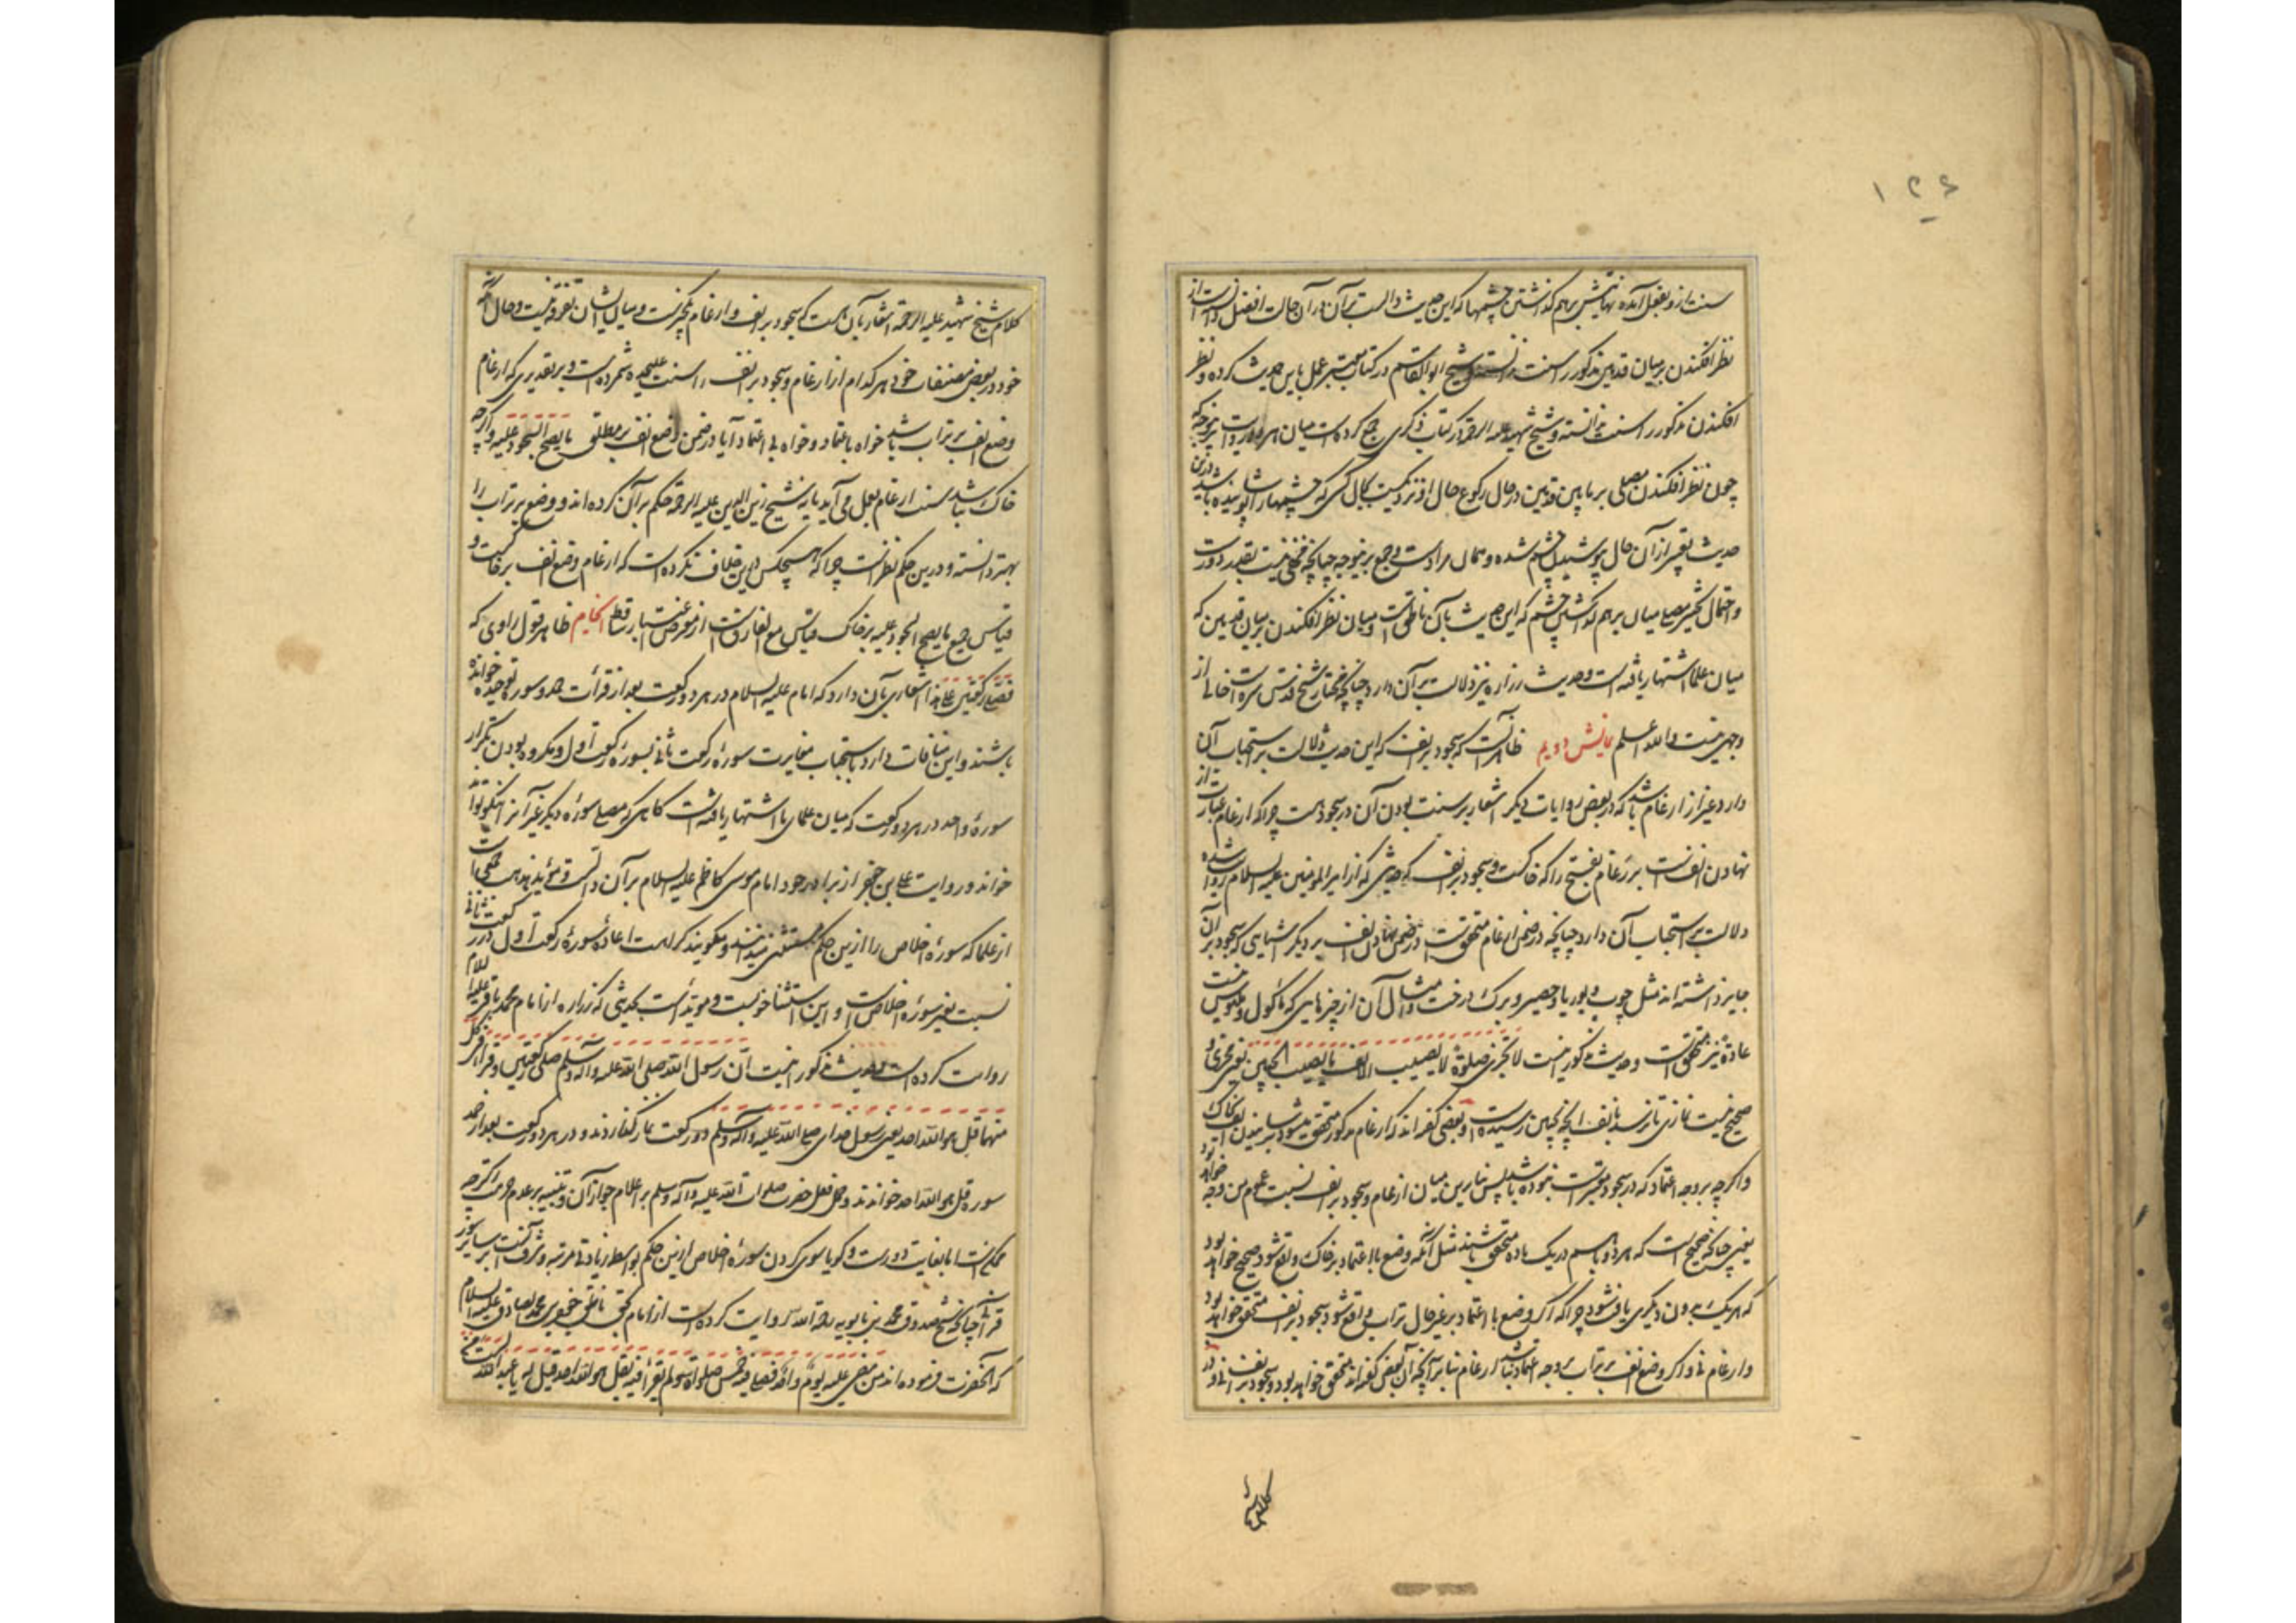 ۱۲۶
سنت ازو بفعل آمده نهایتش برهم گذاشتن چشمها که این حدیث دالست بر آن در آن حالت افضل است از
نظر افکندن بر میان قدمین مذکور را سنت ندانسته و شیخ ابو القاسم در کتاب معتبر عمل باین حدیث کرده و نظر
افکندن مذکور را سنت ندانسته و شیخ شهید علیه الرحمه در کتاب ذکری جمع کرده است میان هر دو روایت بنوعی که
چون نظر افکندن مصلی بر ما بین قدمین در حال رکوع حال او نزدیکست بحال کسی که چشمها را پوشیده باشد درین
حدیث تعبیر از آن حال بپوشیدن چشم شده و همان مراد است و جمع برینوجه چنانچه مخفی نیست بغایت دور است
و احتمال تخییر مصلی میان برهم گذاشتن چشم که این حدیث بآن ناطق است و میان نظر افکندن بر میان قدمین که
میان علما اشتهار یافته است و حدیث زراره نیز دلالت بر آن دارد چنانچه مختار شیخ قدس سره است خالی از
وجهی نیست والله اعلم نمایش دویم ظاهر آنست که سجود بر انف که این حدیث دلالت بر استحباب آن
دارد غیر از ارغام باشد که در بعض روایات دیگر اشعار بر سنت بودن آن در سجود هست چرا که ارغام عبارت از
نهادن انف است بر رغام بفتح را که خاکست و سجود بر انف که حدیثی که از امیر المومنین علیه السلام روایت شده
دلالت بر استحباب آن دارد چنانچه در ضمن ارغام متحقق است در ضمن نهادن انف بر دیگر اشیایی که سجود بر آن
جایز داشته اند مثل چوب و بوریا و حصیر و برک درخت و امثال آن از چیزهایی که ماکول و ملبوس نیست
عادة نیز متحقق است و حدیث مذکور اینست لا تجزی صلوة لا یصیب الانف ما یصیب الجبین یعنی مجزی و
صحیح نیست نمازی که نرسد بانف آنچه بجبین رسیده است و بعضی گفته اند که ارغام مذکور متحقق میشود برسانیدن انف بخاک
و اگرچه بر وجه اعتماد که در سجود معتبر است نبوده باشد پس بنا برین میان ارغام و سجود بر انف نسبت عموم من وجه خواهد بود
یعنی چنانکه صحیح است که هر دو باهم در یک ماده متحقق باشند مثل آنکه وضع با اعتماد بر خاک واقع شود صحیح خواهد بود
که هر یک بدون دیگری یافت شود چرا که اگر وضع با اعتماد بر غیر خاک تراب واقع شود سجود بر انف متحقق خواهد بود
و ارغام نی و اگر وضع انف بر تراب بر وجه اعتماد نباشد ارغام بنا بر آنچه آن بعض گفته اند متحقق خواهد بود و سجود بر انف نی و در
کلام شیخ
کلام شیخ شهید علیه الرحمه اشعار بآن هست که سجود بر انف و ارغام یکچیز است و میان ایشان تفرقه نیست و حال آنکه
خود در بعض مصنفات خود هر کدام از ارغام و سجود بر انف را سنت علیحده شمرده است و بر تقدیری که ارغام
وضع انف بر تراب باشد خواه با اعتماد و خواه بی اعتماد آیا در ضمن وضع انف بر مطلق ما یصح السجود علیه و اگرچه
خاک نباشد سنت ارغام بعمل می آید یا نه شیخ زین الدین علیه الرحمه حکم بر آن کرده اند و وضع بر تراب را
بهتر دانسته و درین حکم نظر است چرا که هیچکس درین خلاف نکرده است که ارغام وضع انف بر خاکست و
قیاس جمیع ما یصح السجود علیه بر خاک قیاس مع الفارق است از معرض اعتبار ساقط انجام ظاهر قول راوی که
فصلی رکعتین علی هذا اشعاری بآن دارد که امام علیه السلام در هر دو رکعت بعد از قرائت حمد سوره توحید خوانده
باشند و این منافات دارد با استحباب مغایرت سوره رکعت ثانی بسوره رکعت اول و مکروه بودن تکرار
سوره واحد در هر دو رکعت که میان علمای ما اشتهار یافته است گاهی که مصلی سوره دیگر غیر آنرا نیکو تواند
خواند و روایت علی بن جعفر از برادر خود امام موسی کاظم علیه السلام بر آن دالست و مؤید مذهب بعضی است
از علما که سوره اخلاص را ازین حکم مستثنی میدانند و میگویند کراهت اعاده سوره رکعت اول در رکعت ثانی
نسبت بغیر سوره اخلاص است و این استثنا خوبست و موید است بحدیثی که زراره از امام محمد باقر علیه السلام
روایت کرده است و حدیث مذکور اینست ان رسول الله صلی الله علیه و آله وسلم صلی رکعتین و قرا فی کل
منهما قل هو الله احد یعنی رسول خدای صلی الله علیه و آله وسلم دو رکعت نماز گذاردند و در هر دو رکعت بعد از حمد
سوره قل هو الله احد خواندند و حمل فعل حضرت صلوات الله علیه و آله وسلم بر اعلام جواز آن و تنبیه بر عدم حرمت اگرچه
ممکن است اما بغایت دور است و گویا سوی کردن سوره اخلاص ازین حکم بواسطه زیادتی مرتبه و شرف آنست بر سایر سور
قرآنی چنانکه شیخ صدوق محمد بن بابویه رحمة الله روایت کرده است از امام بحق ناطق جعفر بن محمد الصادق علیه السلام
که آنحضرت فرموده اند من مضی علیه یوم واحد فصلی فیه خمس صلواة و لم یقرأ فیه بقل هو الله احد قیل له یا عبد الله لست من